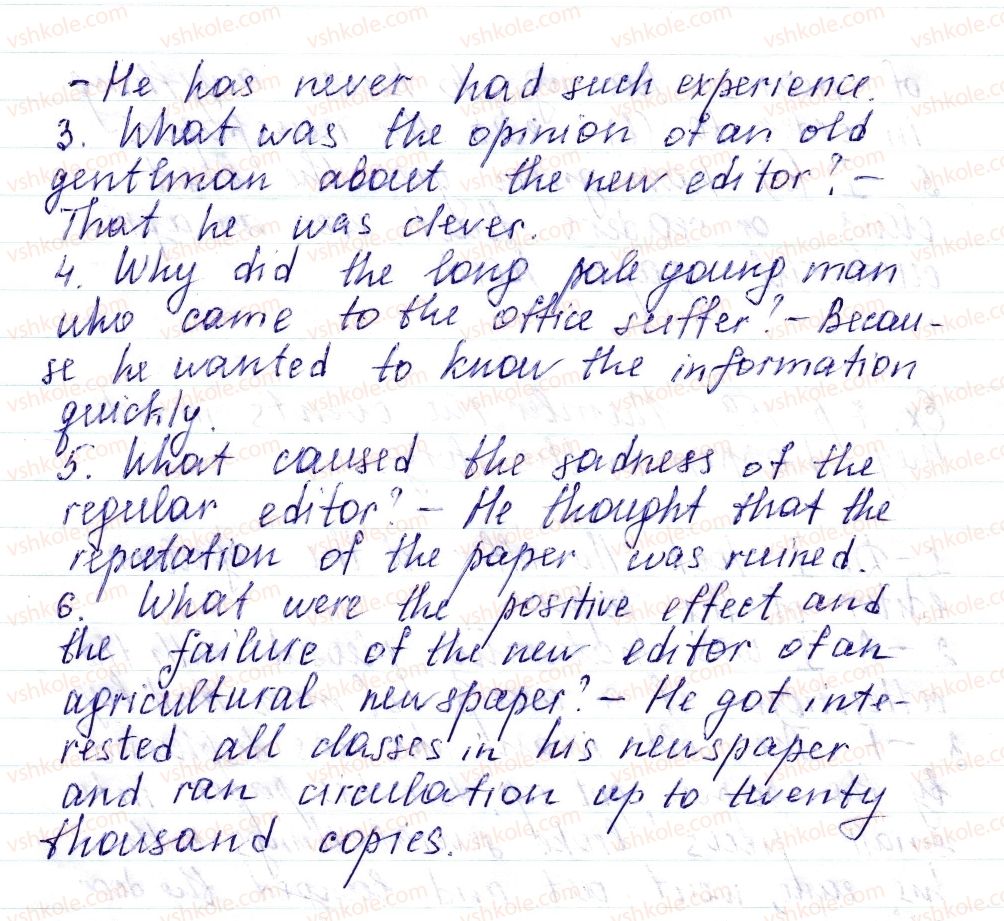 - He has never had such experience.
3. What was the opinion of an old
gentlman about the new editor? -
That he was clever.
4. Why did the long pale young man
who came to the office suffer? - Becau-
se he wanted to know the information
quickly.
5. What caused the sadness of the
regular editor? - He thought that the
reputation of the paper was ruined.
6. What were the positive effect and
the failure of the new editor of an
agricultural newspaper? - He got inte-
rested all classes in his newspaper
and ran circulation up to twenty
thousand copies.